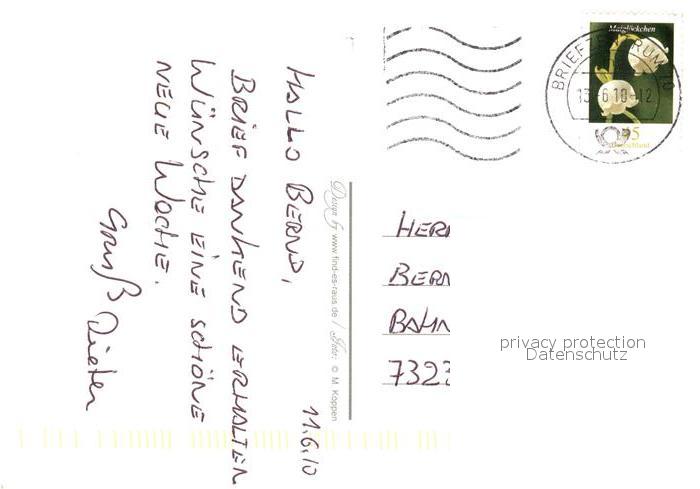 HALLO BERND,
11.6.10
BRIEF DANKEND ERHALTEN
WÜNSCHE EINE SCHÖNE
NEUE WOCHE.
Gruß Dieter
Design by www.find-es-raus.de / Idee: © M. Köppen
Maiglöckchen
45
Deutschland
BRIEFZENTRUM 10
13.-6.10-12
HERR
BERN
BAHN
7323
privacy protection
Datenschutz